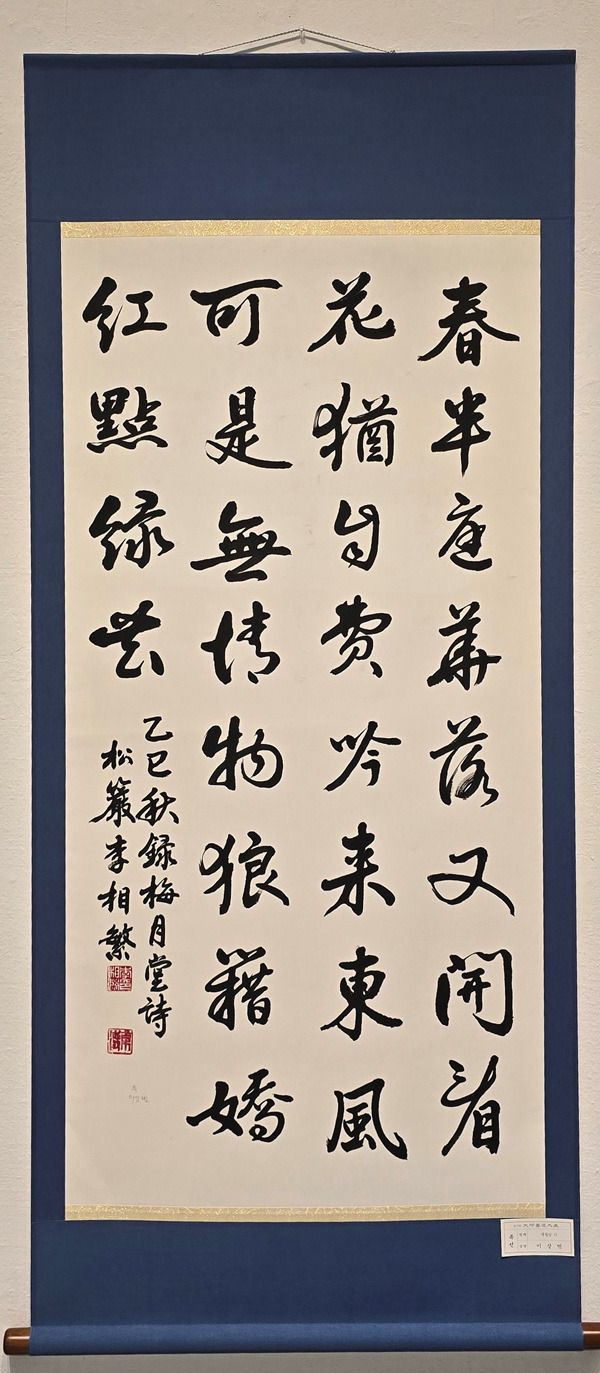 春半庭華落又開看
花猶自費吟来東風
可是無情物狼籍嬌
紅點綠苔
乙巳秋錄梅月堂詩
松巖李相繁
이 상 번